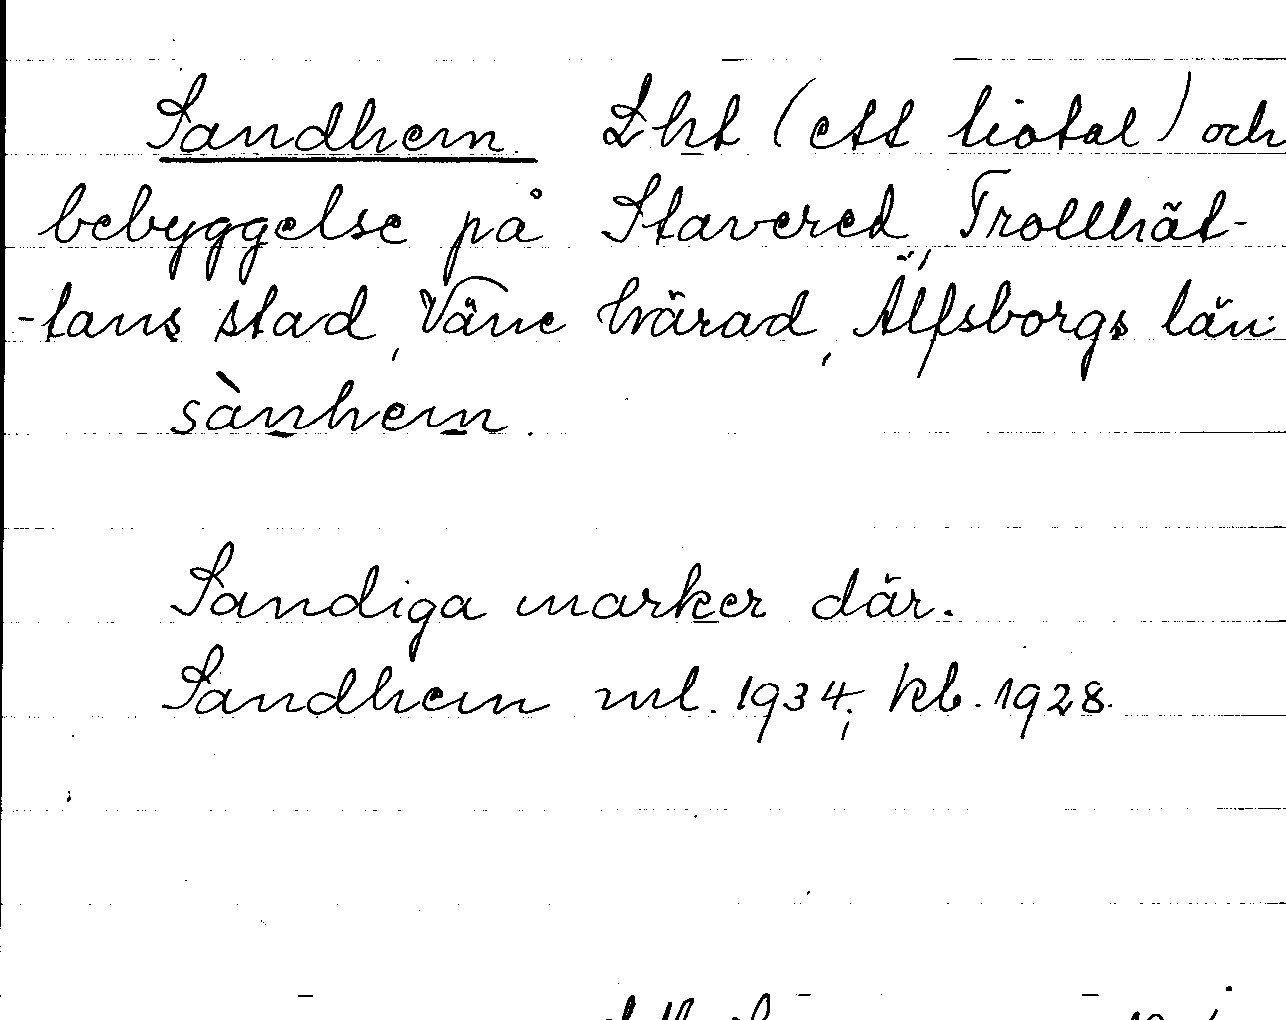 Sandhem. Lht (ett tiotal) och
bebyggelse på Stavered, Trollhät-
-tans stad, Väne härad, Älfsborgs län.
sànhem.
Sandiga marker där.
Sandhem ml. 1934; kb. 1928.